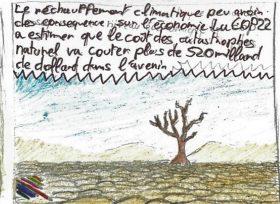 Le rechauffement climatique peu avoir
des consequence sur l'économie La COP22
a estimer que le coût des catastrophes
naturel va couter plus de 520 milliard
de dollard dans l'avenir